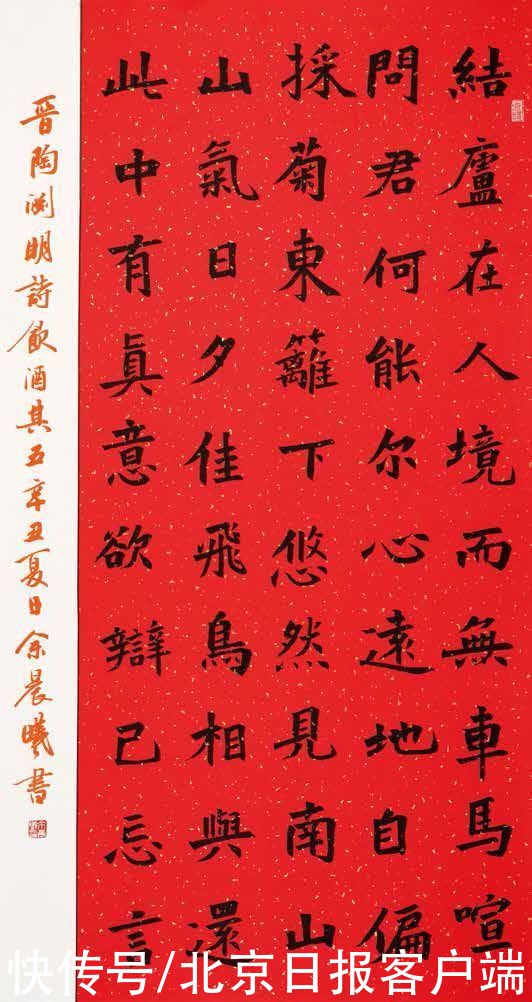 結廬在人境而無車馬喧
問君何能尔心遠地自偏
採菊東籬下悠然見南山
山氣日夕佳飛鳥相與還
此中有眞意欲辯已忘言
晋陶渊明詩飲酒其五辛丑夏日余晨曦書
快传号/北京日报客户端